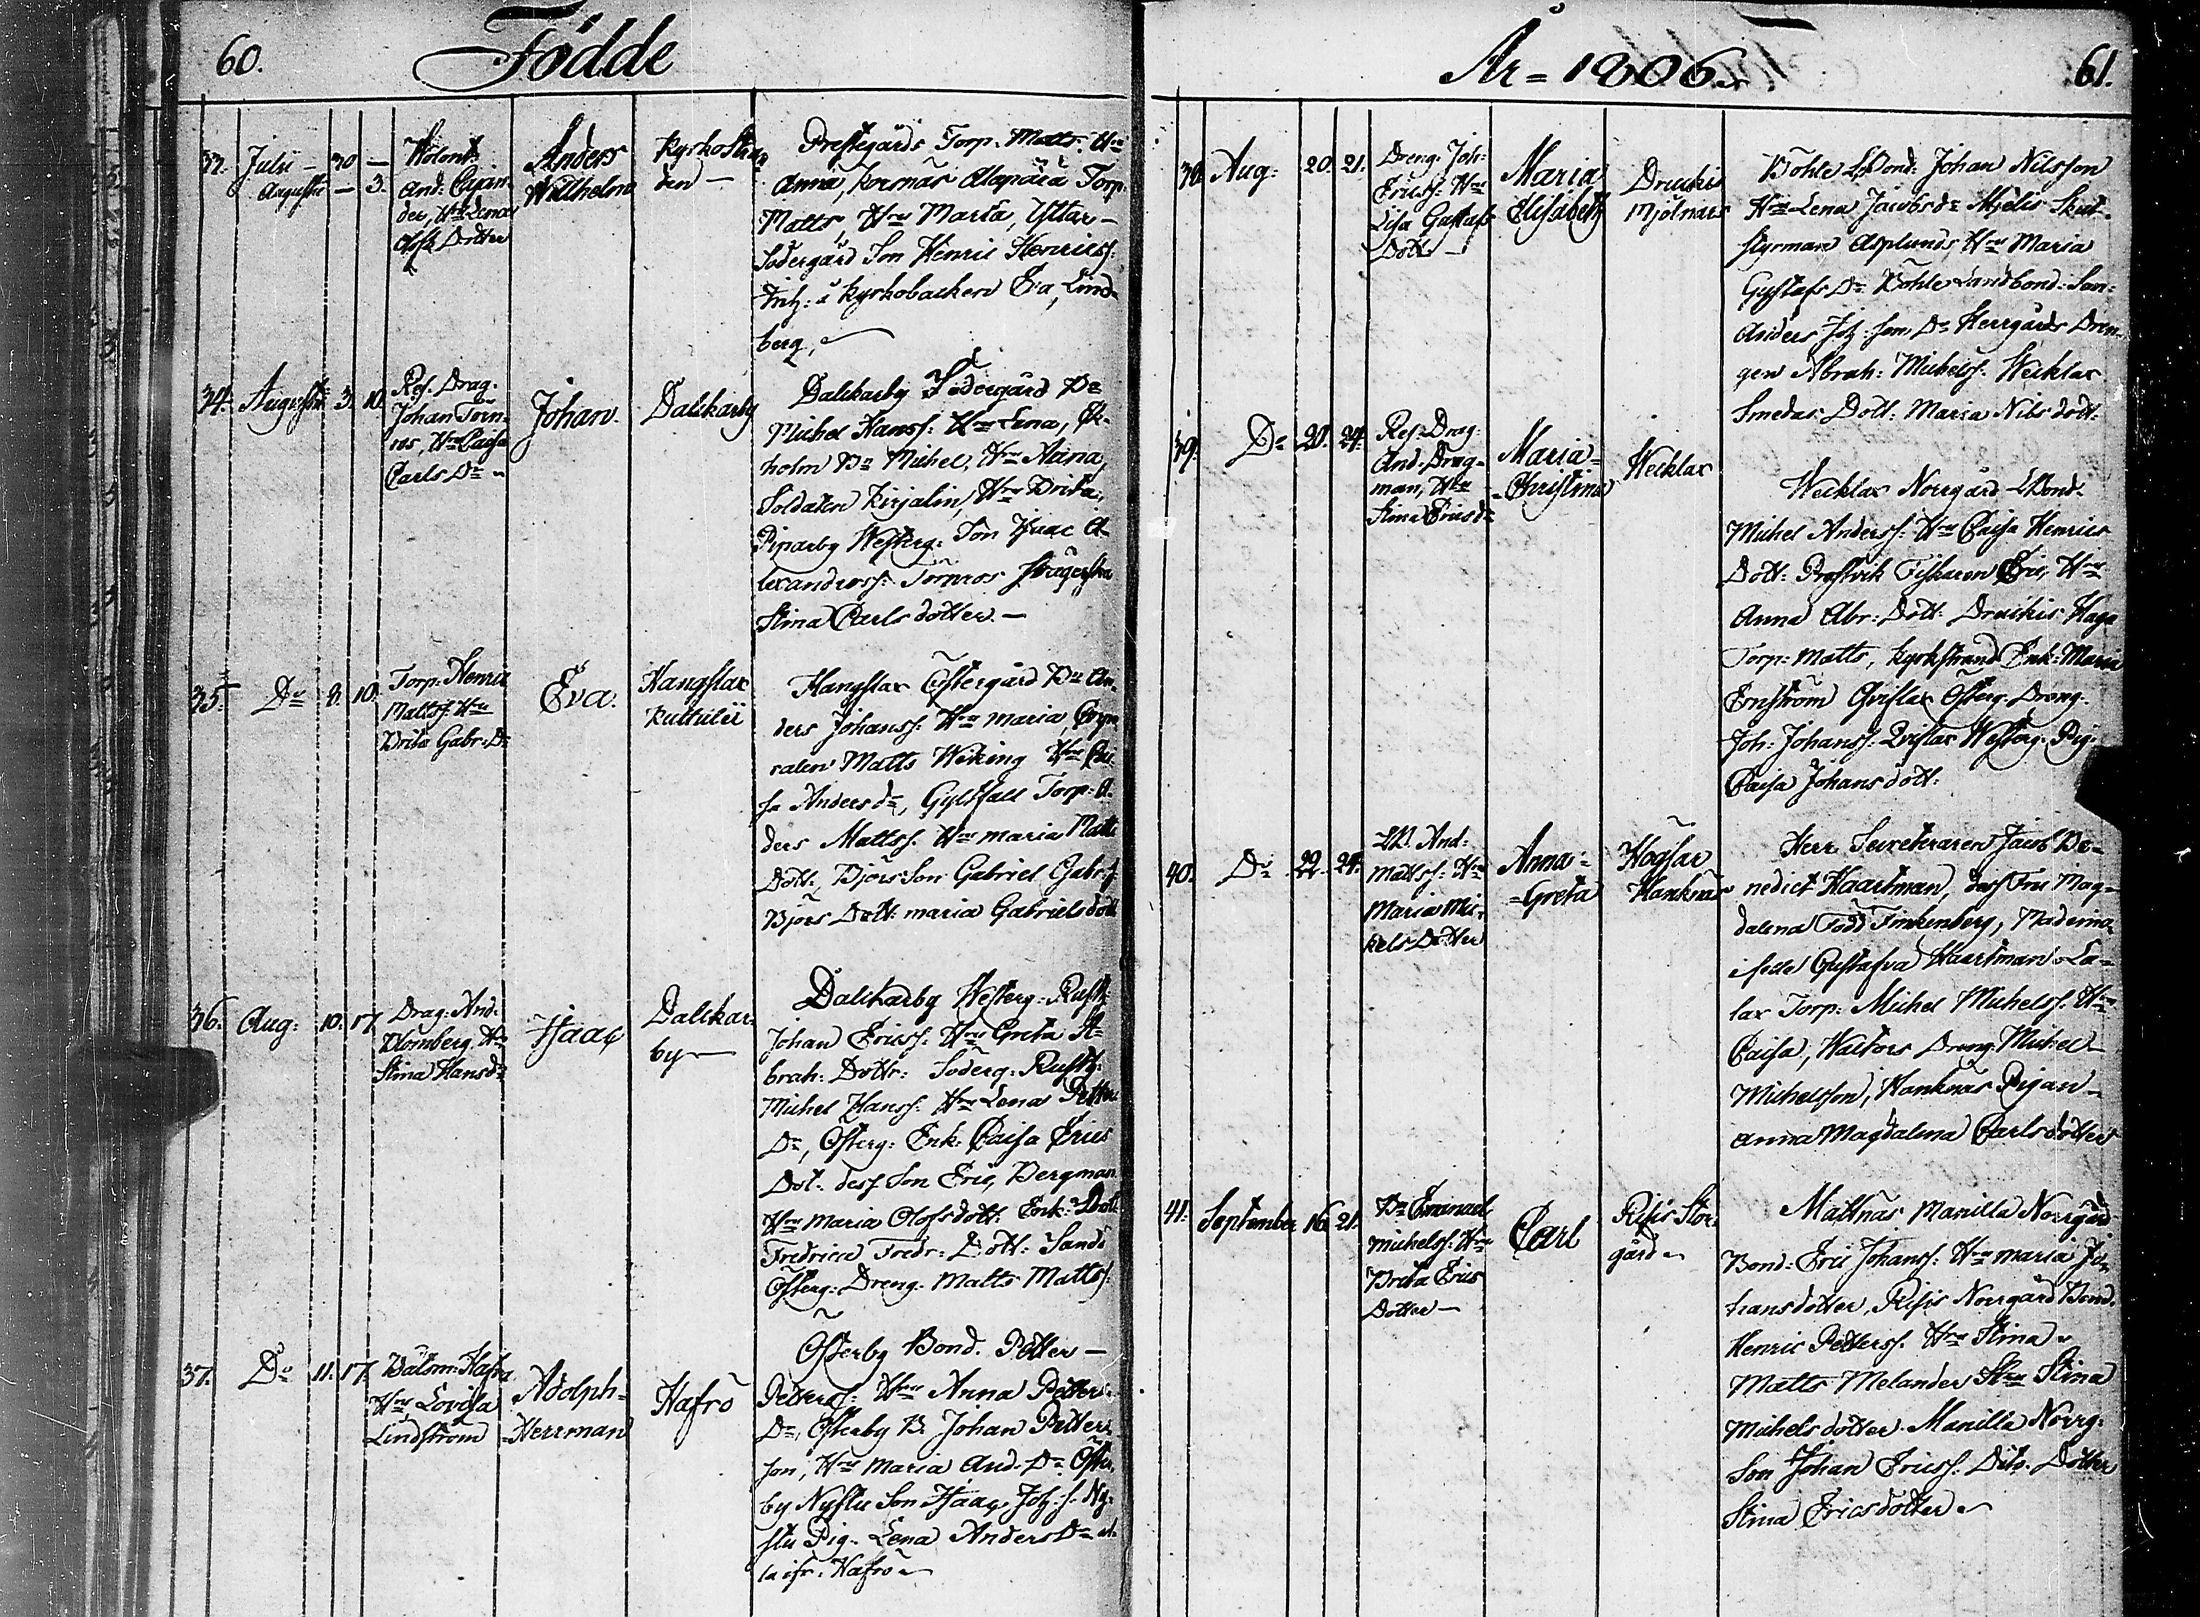 60. Födde
33. Julii — 30 —
Augusti — 3.
Volont:
And: Cajan-
der, Hru Lena
Olofs Dotter
Anders
Wilhelm
Kyrkostran
den —
Prestegårds Torp. Matts. Hru
Anna, Kornäs Torp.
Matts, Hru Maria, Yttar-
Södergård Son Henric Henricss:
Inh: i Kyrkobacken Eva Lind-
berg,
34. Augusti 3. 10.
Res. Drag.
Johan Törn-
ros, Hru Caisa
Carls Dr
Johan.
Dalkarby
Dalkarby Södergård Bo
Michel Hanss: Hru Lena, Ek-
holm Bo Michel, Hru Anna,
Soldaten Kirjalin, Hru Brita,
Piparby Westerg: Son Isaac A-
lexanderss: Törnros
Stina Carls dotter. —
35. Do 8. 10.
Torp: Henric
Mattss: Hru
Brita Gabr: Dr
Eva.
Hangslax
Kuttulii
Hangslax Östergård Bo An-
ders Johanss: Hru Maria, Corpo-
ralen Matts Weking Hru Cai-
sa Anders dr, Gyltfall Torp: A-
ders Mattss. Hru Maria Matts
Dott:, Björs Son Gabriel Gabr:s
Björs Dott: Maria Gabriels dott:
36. Aug: 10. 17.
Drag: And:
Blomberg Hru
Stina Hans dr
Isaac
Dalkar-
by —
Dalkarby Westerg: Rusth:
Johan Ericss: Hru Greta A-
brah: Dottr: Söderg: Rusth:
Michel Hanss: Hru Lena Petter
Dr, Österg: Enk: Caisa Erics
Dot: dess Son Eric, Bergman
Hru Maria Olofsdott: Enk:
Fredrica Fredr: Dott: Sands
Österg: Dreng: Matts Mattss:
37. Do 11. 17.
Båtsm: Hafro
Hru Lovisa
Lindström
Adolph-
-Herrman
Hafrö
Österby Bond. Petter —
Peterss: Hru Anna Petters
Dr, Österby B. Johan Petter
son, Hru Maria And: Dr Öster-
by Nystu Son Isaac Joh: s. Ny-
stu Pig. Lena Anders Dr al-
la ifr: Hafrö
År = 1806. 61.
38. Aug: 20. 21.
Dreng: Joh:
Ericss: Hru
Lisa Gustafs
Dott —
Maria
Elisabeth
Druckis
Mjölnars
Böhle LBond: Johan Nilsson
Hru Lena Jacobs dr Mjelis Skut-
styrman Asplunds Hru Maria
Gustafs Dr Böhle Landbond: Son:
Anders Joh: son, Do Herrgårds Dren-
gen Abrah: Michelss: Wecklax
Smedas Dott: Maria Nils dott:
39. Do 20. 24.
Res: Drag:
And: Drag-
man, Hru
Stina Erics dr
Maria-
-Christina
Wecklax
Wecklax Norrgård LBond.
Michel Anderss: Hru Caisa Henrics
Dott: Prostvik Fiskaren Eric, Hru
Anna Abr: Dott: Druckis Haga
Torp: Matts, Kyrkstrand Enk: Maria
Ernström Qvislax Österg: Dreng:
Joh: Johanss: Qvislax Westerg: Pig:
Caisa Johans dott:
40. Do 22. 24.
LB. And:
Mattss: Hru
Maria Mi-
kels Dotter
Anna-
-Greta
Högsar
Hanknäs
Herr Secreteraren Jacob Be-
nedict Haartman, dess Fru Mag-
dalena Född Finkenberg, Mademoi-
selle Gustafva Haartman La-
lax Torp: Michel Michelss: Hru
Caisa, Waltors Dreng. Michel
Michelsson, Hanknäs Pigan —
Anna Magdalena Carls dotter
41. September 16. 21.
Bo Emanuel
Michelss: Hru
Brita Erics
Dotter —
Carl
Risis Stor-
gård
Mattnäs Manilla Norrgård
Bond: Eric Johanss: Hru Maria Jo-
hansdotter, Risis Norrgård Bond.
Henric Petterss: Hru Stina
Matts Melander Hru Stina
Michels dotter. Manilla Norrg:
Son Johan Ericss: Dito. Dotter
Stina Ericsdotter